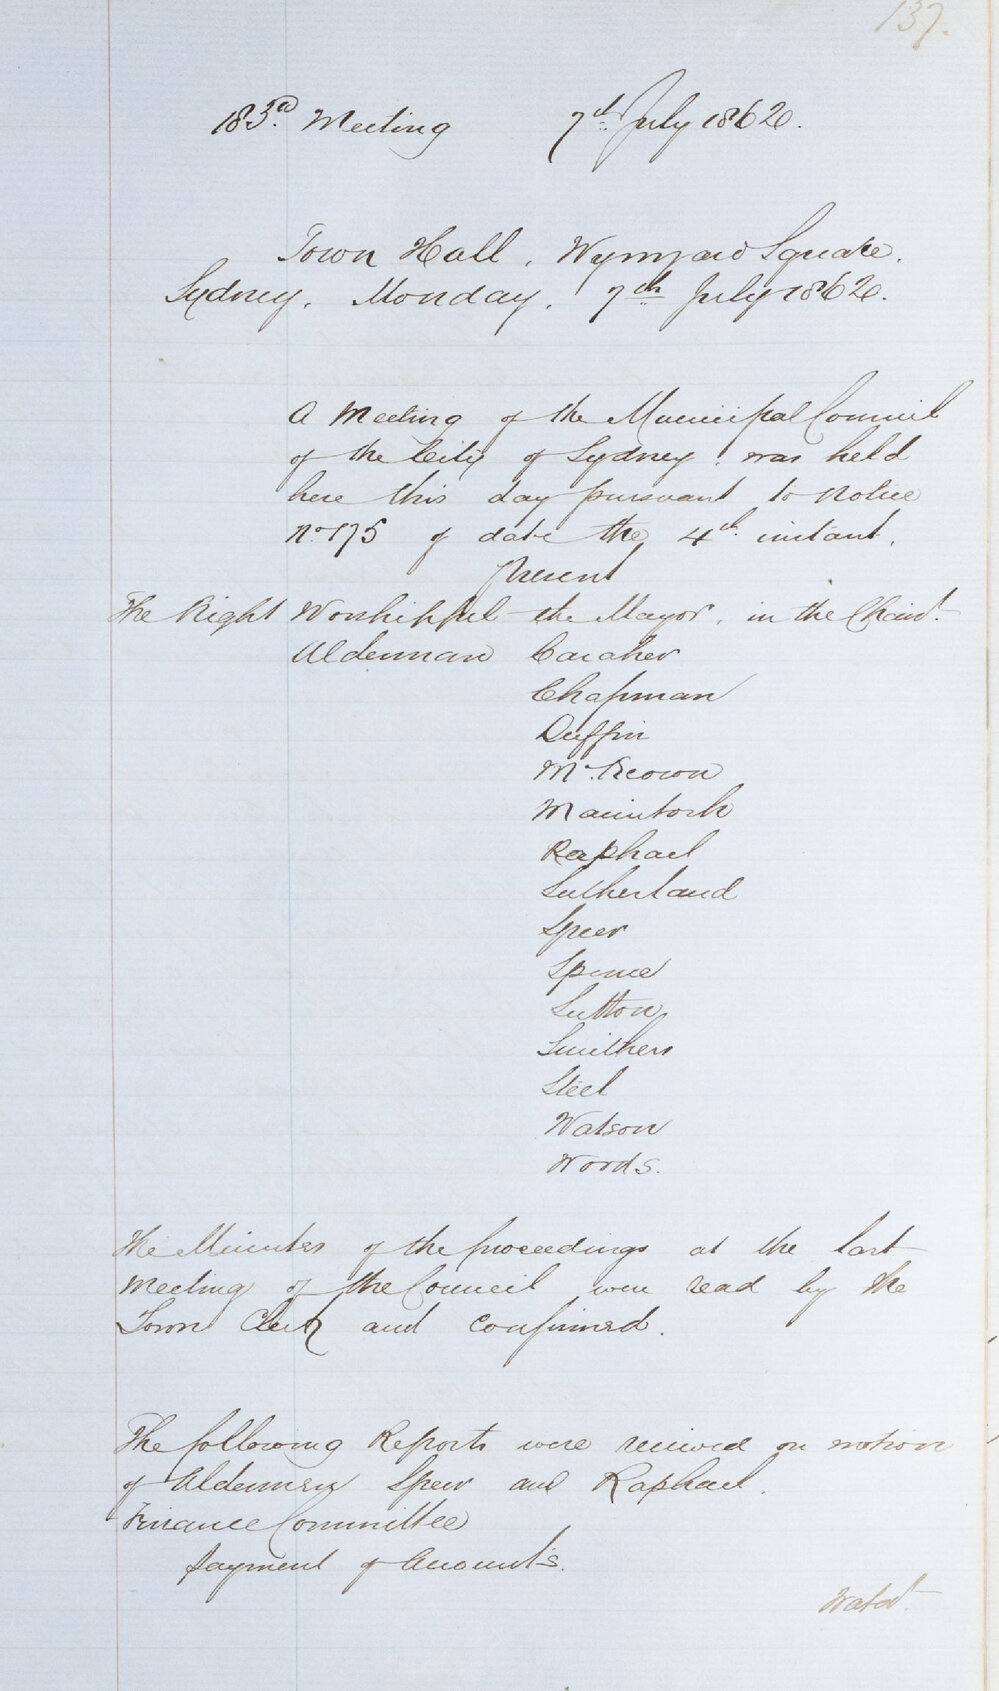 137.
183rd. Meeting 7th July 1862.
Town Hall, Wynyard Square.
Sydney, Monday, 7th July 1862.
A Meeting of the Municipal Council
of the City of Sydney, was held
here this day pursuant to Notice
No. 175 of date the 4th instant.
Present
The Right Worshipful the Mayor, in the Chair.
Alderman Caraher
Chapman
Duffin
McKeown
Macintosh
Raphael
Sutherland
Speer
Spence
Sutton
Smithers
Steel
Watson
Woods.
The Minutes of the proceedings at the last
meeting of the Council were read by the
Town Clerk and confirmed.
The following Reports were received on motion
of Aldermen Speer and Raphael.
Finance Committee
Payment of Accounts.